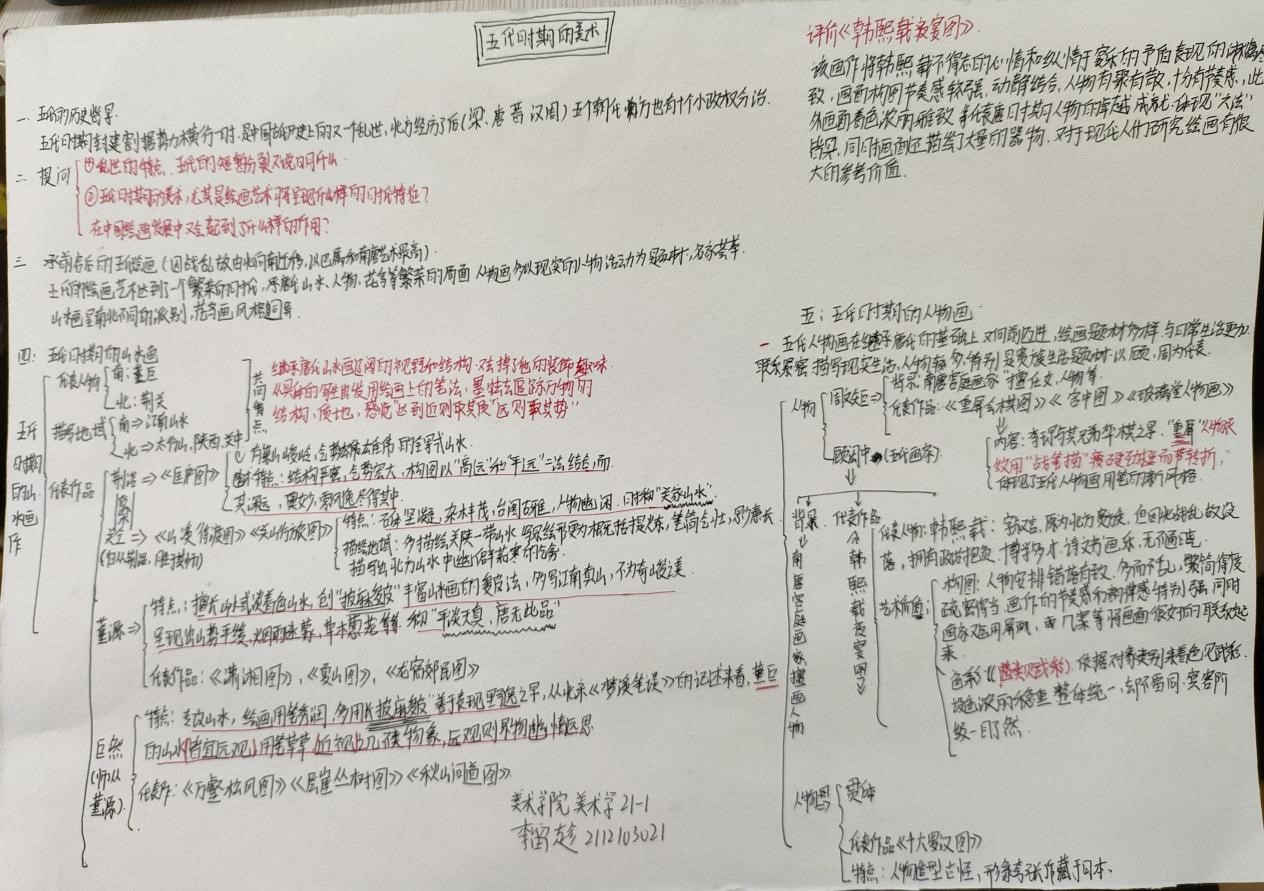 五代时期的美术
一、五代的历史背景
五代时期封建割据势力横行一时,是中国古代历史上的又一个乱世,北方经历了后(梁、唐、晋、汉、周)五个朝代,南方也有十个小政权分治.
二 提问
①乱世的特点、五代的短暂分裂又说明什么
②五代时期的美术,尤其是绘画艺术将呈现什么样的时代特征?
在中国绘画发展中又会起到了什么样的作用?
三 承前启后的五代绘画(因战乱故由北向南迁移,以巴蜀和南唐艺术最高).
五代的绘画艺术达到了一个繁荣的时代,承唐代山水、人物、花鸟等繁荣的局面 人物画多以现实的人物活动为题材,名家荟萃.
山水画呈南北不同的派别,花鸟画风格迥异.
四: 五代时期的山水画
五代时期的山水画作
代表人物
南: 董巨
北: 荆关
描写地域
南⇒江南山水
北⇒太行山,陕西,关中
共同特点
继承唐代山水画辽阔的视野和结构,又去掉了他的装饰趣味
从具体的写生出发用绘画上的笔法、墨法去追求万物的
结构、质地,感觉达到近则取其质"远则取其势"
代表作品
荆浩⇒《匡庐图》
有崇山峻岭,气势雄伟的全景式山水.
图木特点: 结构严密,气势宏大,构图以"高远"和"平远"二法结合,而
其深远,奥妙,飘逸尽得其中.
关仝⇒《山溪待渡图》《关山行旅图》
(师从荆浩,胜于荆浩)
特点: 石体坚凝,杂木丰茂,台阁古雅,人物幽闲.时称"关家山水".
描绘地域: 多描绘关陕一带山水
描写出北方山水中
董源⇒
特点: 擅长山水式淡着色山水,创"披麻皴"丰富山水画的皴法,多写江南真山,不为奇峭之美
呈现出山势平缓,烟雨迷蒙,草木葱茏 称"平淡天真,唐无此品"
代表作品:《潇湘图》、《夏山图》、《龙宿郊民图》
巨然
(师从董源)
特点: 专攻山水,绘画用笔秀润,多用长披麻皴"善于表现 从北宋《梦溪笔谈》的记述来看,董巨
的山水"皆宜远观,用笔草草,近视几不类物象,远观则景物幽情远思
代表作:《万壑松风图》《层崖丛树图》《秋山问道图》
美术学院 美术学21-1
2112103021
评价《韩熙载夜宴图》
该画作将韩熙载不得志的心情和纵情于宴乐的矛盾表现的
致,画面构图节奏感较强.动静结合,人物有聚有散,十分有节奏,此
外画面着色浓丽雅致,代表唐时期人物的卓越成就.体现"六法"
同时画面还描绘了大量的器物,对于现代人们研究绘画有很
大的参考价值.
五: 五代时期的人物画
一 五代人物画在继承唐代的基础上又向前迈进,绘画题材多样,与日常生活更加
联系紧密,描写现实生活,人物较多,特别是贵族生活题材.以顾,周为代表.
人物
周文矩⇒
背景: 南唐宫廷画家"擅仕女,人物等.
代表作品:《重屏会棋图》《宫中图》《玻璃堂人物画》
内容: 李璟与其兄弟下棋之景."重屏"人物衣
纹用"战笔描"瘦硬战掣而有转折,
体现了五代人物画用笔的清风格.
顾闳中(五代画家)
背景→南唐宫廷画家擅画人物
代表作品《韩熙载夜宴图》
代表人物: 韩熙载: 字叔言,原为北方贵族,但因北战乱故没
落,拥有政治抱负、博学多才、诗文书画乐,无不通晓.
艺术价值:
构图: 人物安排错落有致、多而不乱,繁简得度
疏密得当.画作的节奏感和韵律感特别强,同时
画家又运用屏风,或几案等将画面很好的联系起
来.
色彩《随类赋彩》依据对象类别来着色见或彩.
设色浓丽稳重 整体统一,却不雷同.宾客阶
级一目了然.
人物
贯休
代表作品《十六罗汉图》
特点: 人物造型古怪,形象夸张作藏于日本.